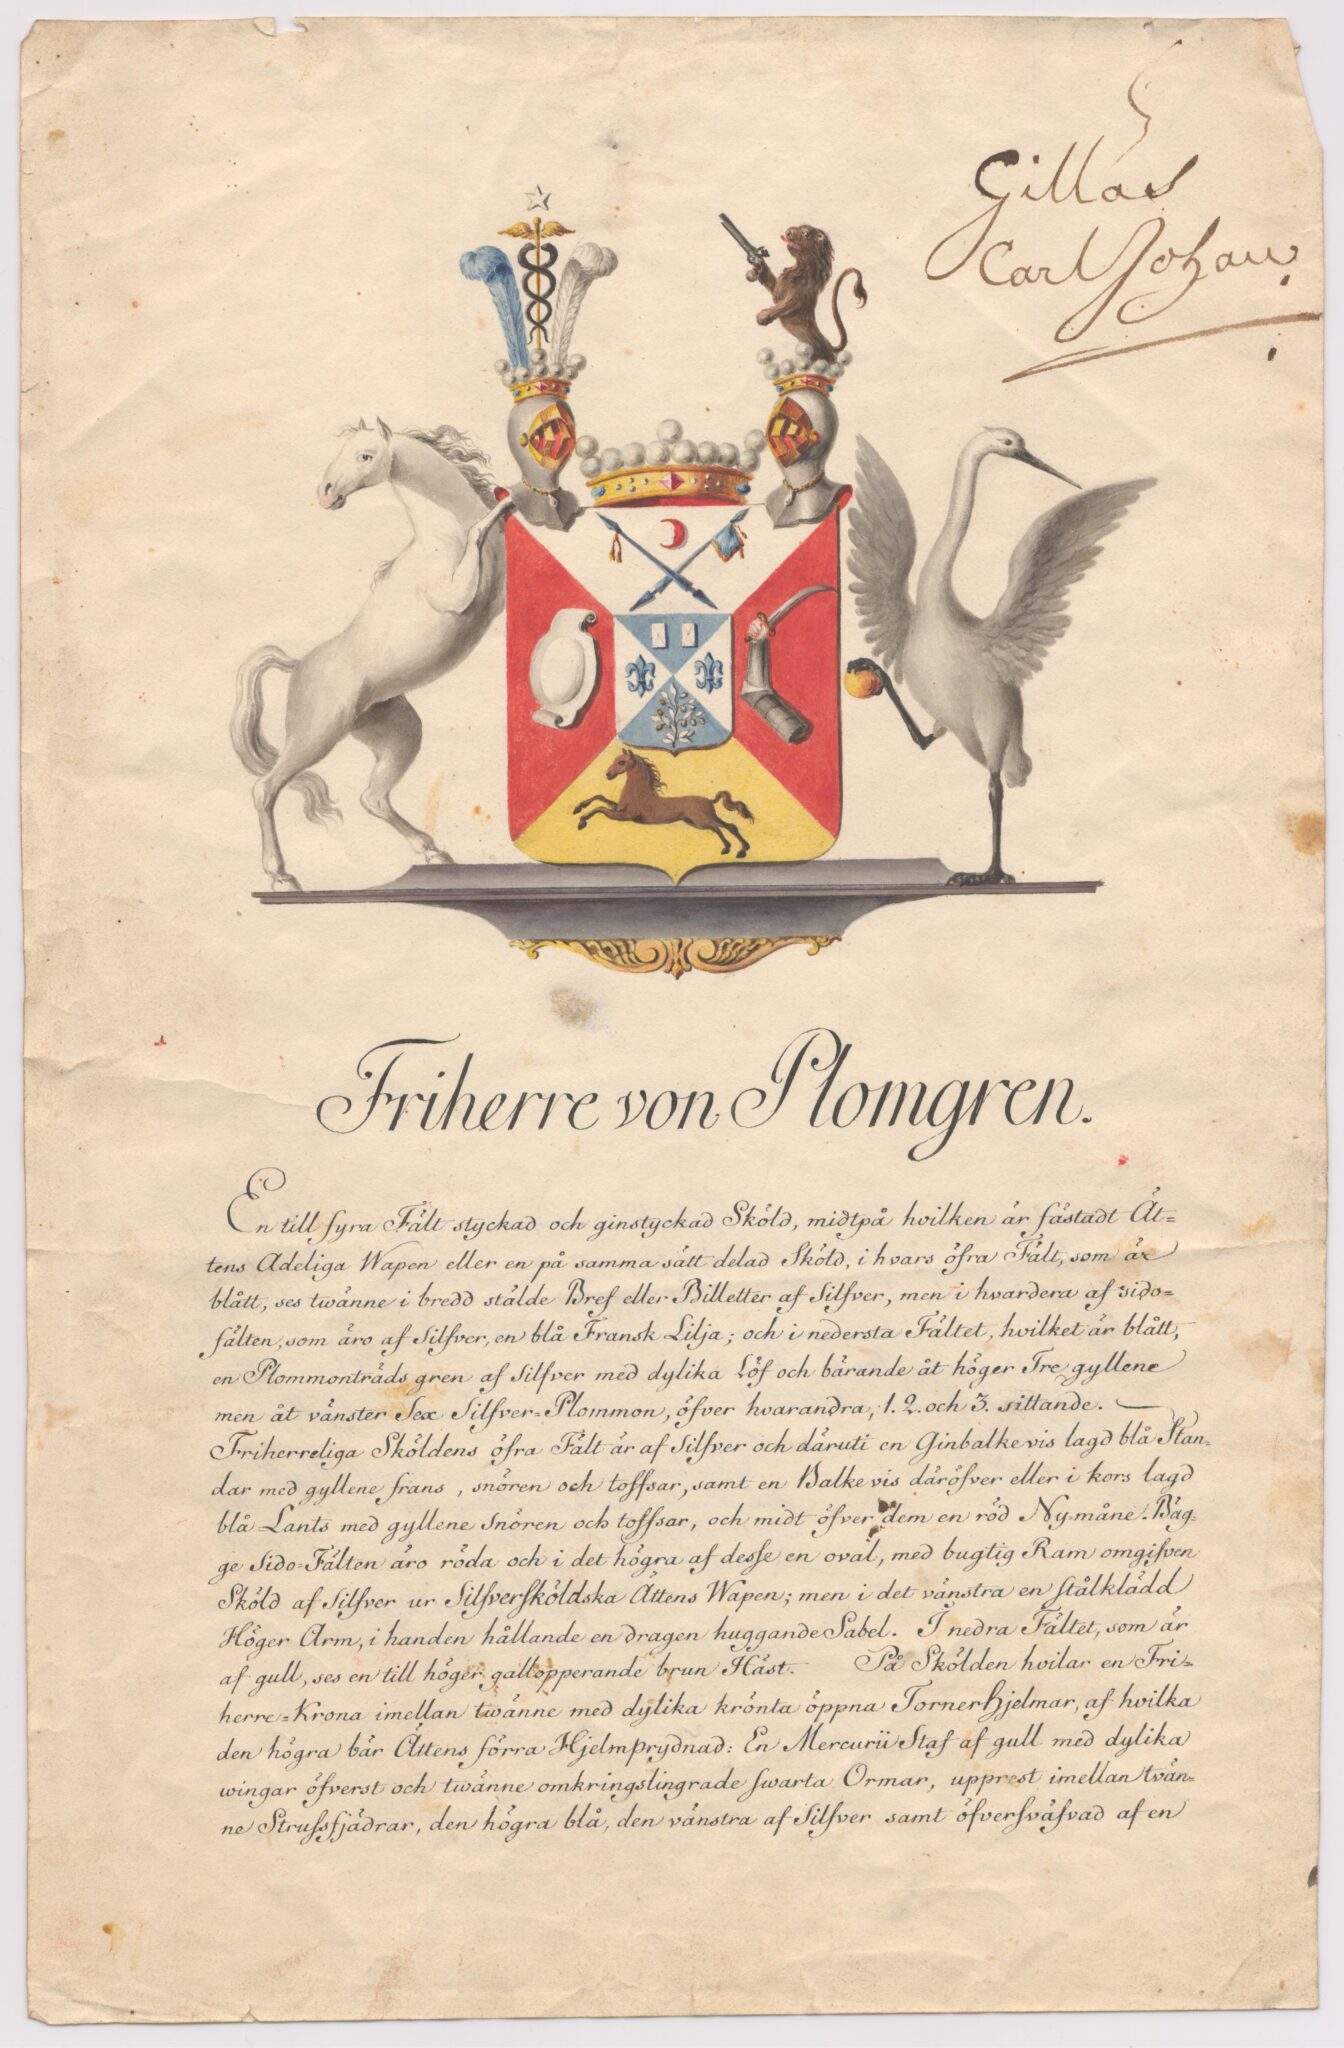 Gillas
Carl Johan.
Friherre von Plomgren.
En till fyra Fält styckad och ginstyckad Sköld, midtpå hvilken är fästadt Ät=
tens Adeliga Wapen eller en på samma sätt delad Sköld, i hvars öfra Fält, som är
blått, ses twänne i bredd stälde Bref eller Billetter af Silfver, men i hvardera af sido=
fälten, som äro af Silfver, en blå Fransk Lilja; och i nedersta Fältet, hvilket är blått,
en Plommonträds gren af Silfver med dylika Löf och bärande åt höger Tre gyllene
men åt vänster Sex Silfver=Plommon, öfver hvarandra, 1. 2. och 3. sittande.
Friherreliga Sköldens öfra Fält är af Silfver och däruti en Ginbalkevis lagd blå Stan=
dar med gyllene frans, snören och toffsar, samt en Balkevis däröfver eller i kors lagd
blå Lants med gyllene Snören och toffsar, och midt öfver dem en röd Nymåne. Bäg=
ge Sido-Fälten äro röda och i det högra af desse en oval, med bugtig Ram omgifven
Sköld af Silfver ur Silfversköldska Ättens Wapen; men i det vänstra en stålklädd
Höger Arm, i handen hållande en dragen huggande Sabel. I nedra Fältet, som är
af gull, ses en till höger gallopperande brun Häst. På Skölden hvilar en Fri=
herre=Krona imellan twänne med dylika krönta öppna TornerHjelmar, af hvilka
den högra bär Ättens förra Hjelmprydnad: En Mercurii Staf af gull med dylika
wingar öfverst och twänne omkringslingrade swarta Ormar, upprest imellan tvän=
ne Strussfjädrar, den högra blå, den vänstra af Silfver samt öfversväfvad af en